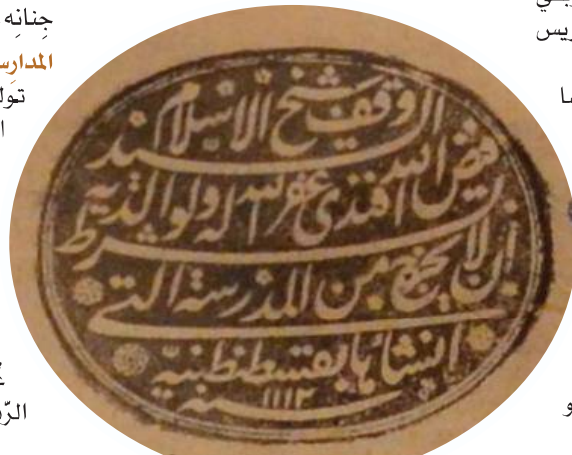 جِنانِه
وقف شيخ الاسلام
السيد
فيض الله افندى غفر الله له ولوالديه
بشرط
ان لا يخرج من المدرسة التى
انشأها بقسطنطنية
سنه ١١١٢